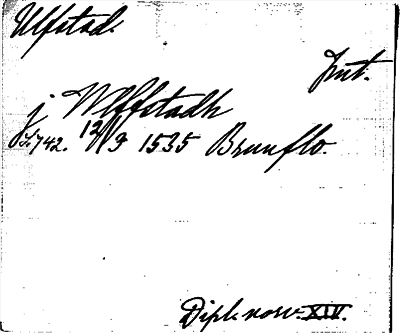 Ulfstad.
Jmt.
j Wlffstadh
S. 742. 12/9 1535 Brunflo.
Dipl. norv. XIV.